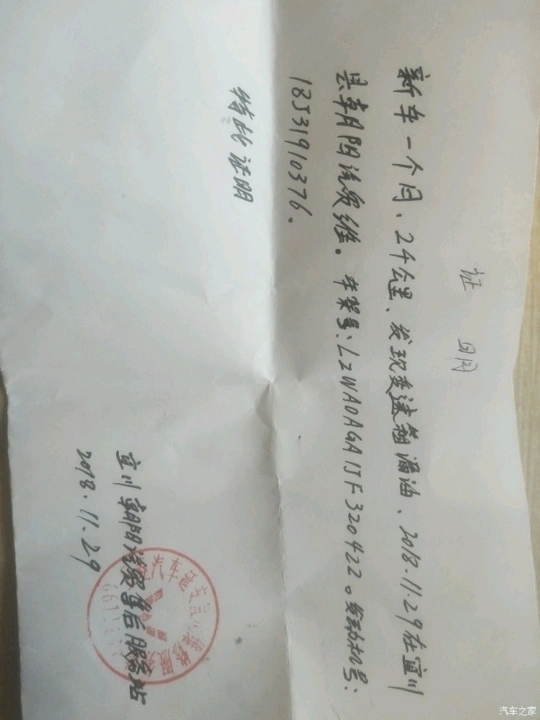 证 明
新车一个月、2千公里、发现变速箱漏油、2018.11.29在宜川
县朝阳汽贸维。车架号:LZWADAGA1JF320422。发动机号:
18J31910376.
特此证明
宜川朝阳汽贸售后服务站
2018.11.29
汽车延安宜川
汽车之家